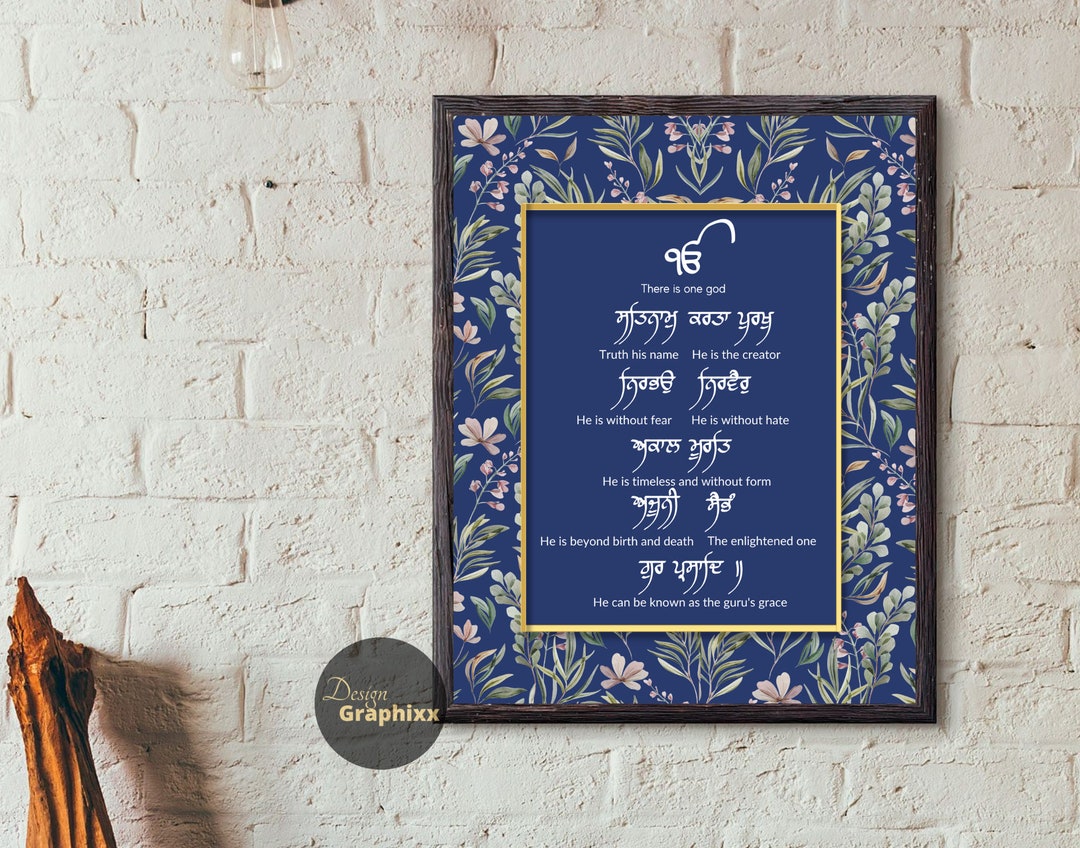 ੴ
There is one god
ਸਤਿਨਾਮੁ ਕਰਤਾ ਪੁਰਖੁ
Truth his name He is the creator
ਨਿਰਭਉ ਨਿਰਵੈਰੁ
He is without fear He is without hate
ਅਕਾਲ ਮੂਰਤਿ
He is timeless and without form
ਅਜੂਨੀ ਸੈਭੰ
He is beyond birth and death The enlightened one
ਗੁਰ ਪ੍ਰਸਾਦਿ ॥
He can be known as the guru's grace
Design
Graphixx